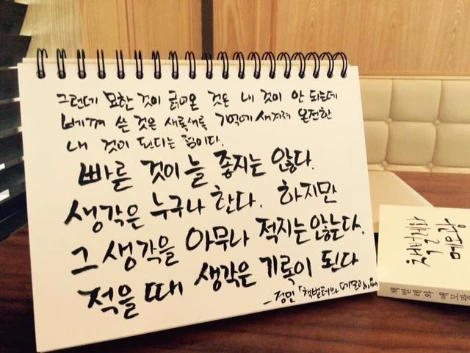 그런데 묘한 것이 긁어온 것은 내 것이 안 되는데
베껴 쓴 것은 새록새록 기억에 새겨져 온전한
내 것이 된다는 점이다.
빠른 것이 늘 좋지는 않다.
생각은 누구나 한다. 하지만
그 생각을 아무나 적지는 않는다.
적을 때 생각은 기록이 된다
- 정민 「책벌레와 메모광」
책벌레와
메모광
책벌레와 메모광